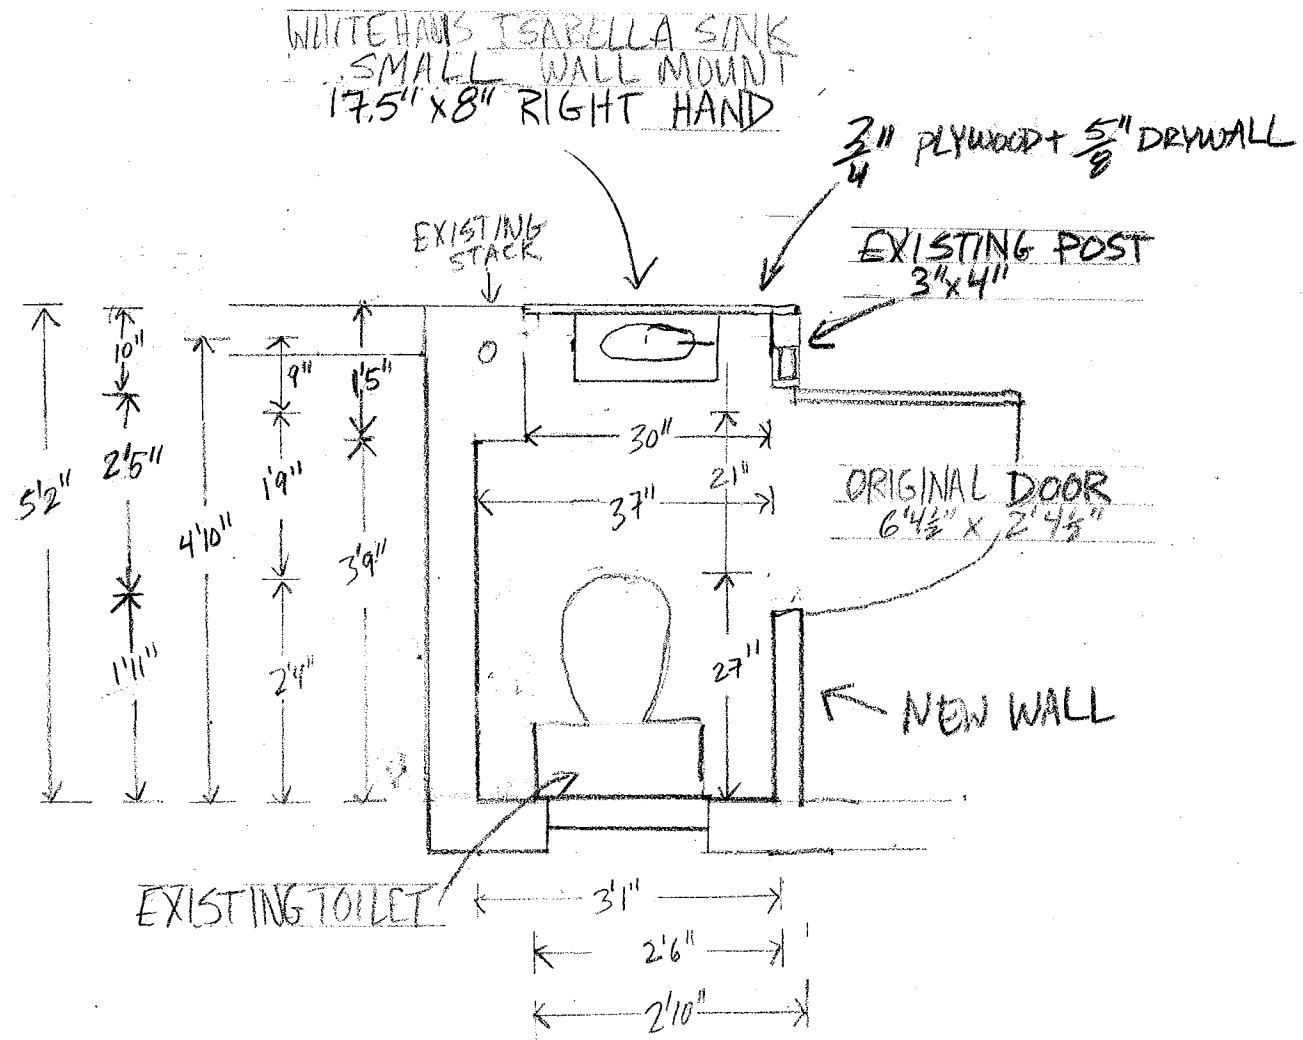 WHITEHAUS ISABELLA SINK
SMALL WALL MOUNT
17.5" x 8" RIGHT HAND
3/4" PLYWOOD + 5/8" DRYWALL
EXISTING
STACK
EXISTING POST
3" x 4"
10"
9"
1'5"
30"
2'5"
1'9"
21"
5'2"
37"
ORIGINAL DOOR
6'4½" x 2'4½"
4'10"
3'9"
1'11"
2'4"
27"
NEW WALL
EXISTING TOILET
3'1"
2'6"
2'10"